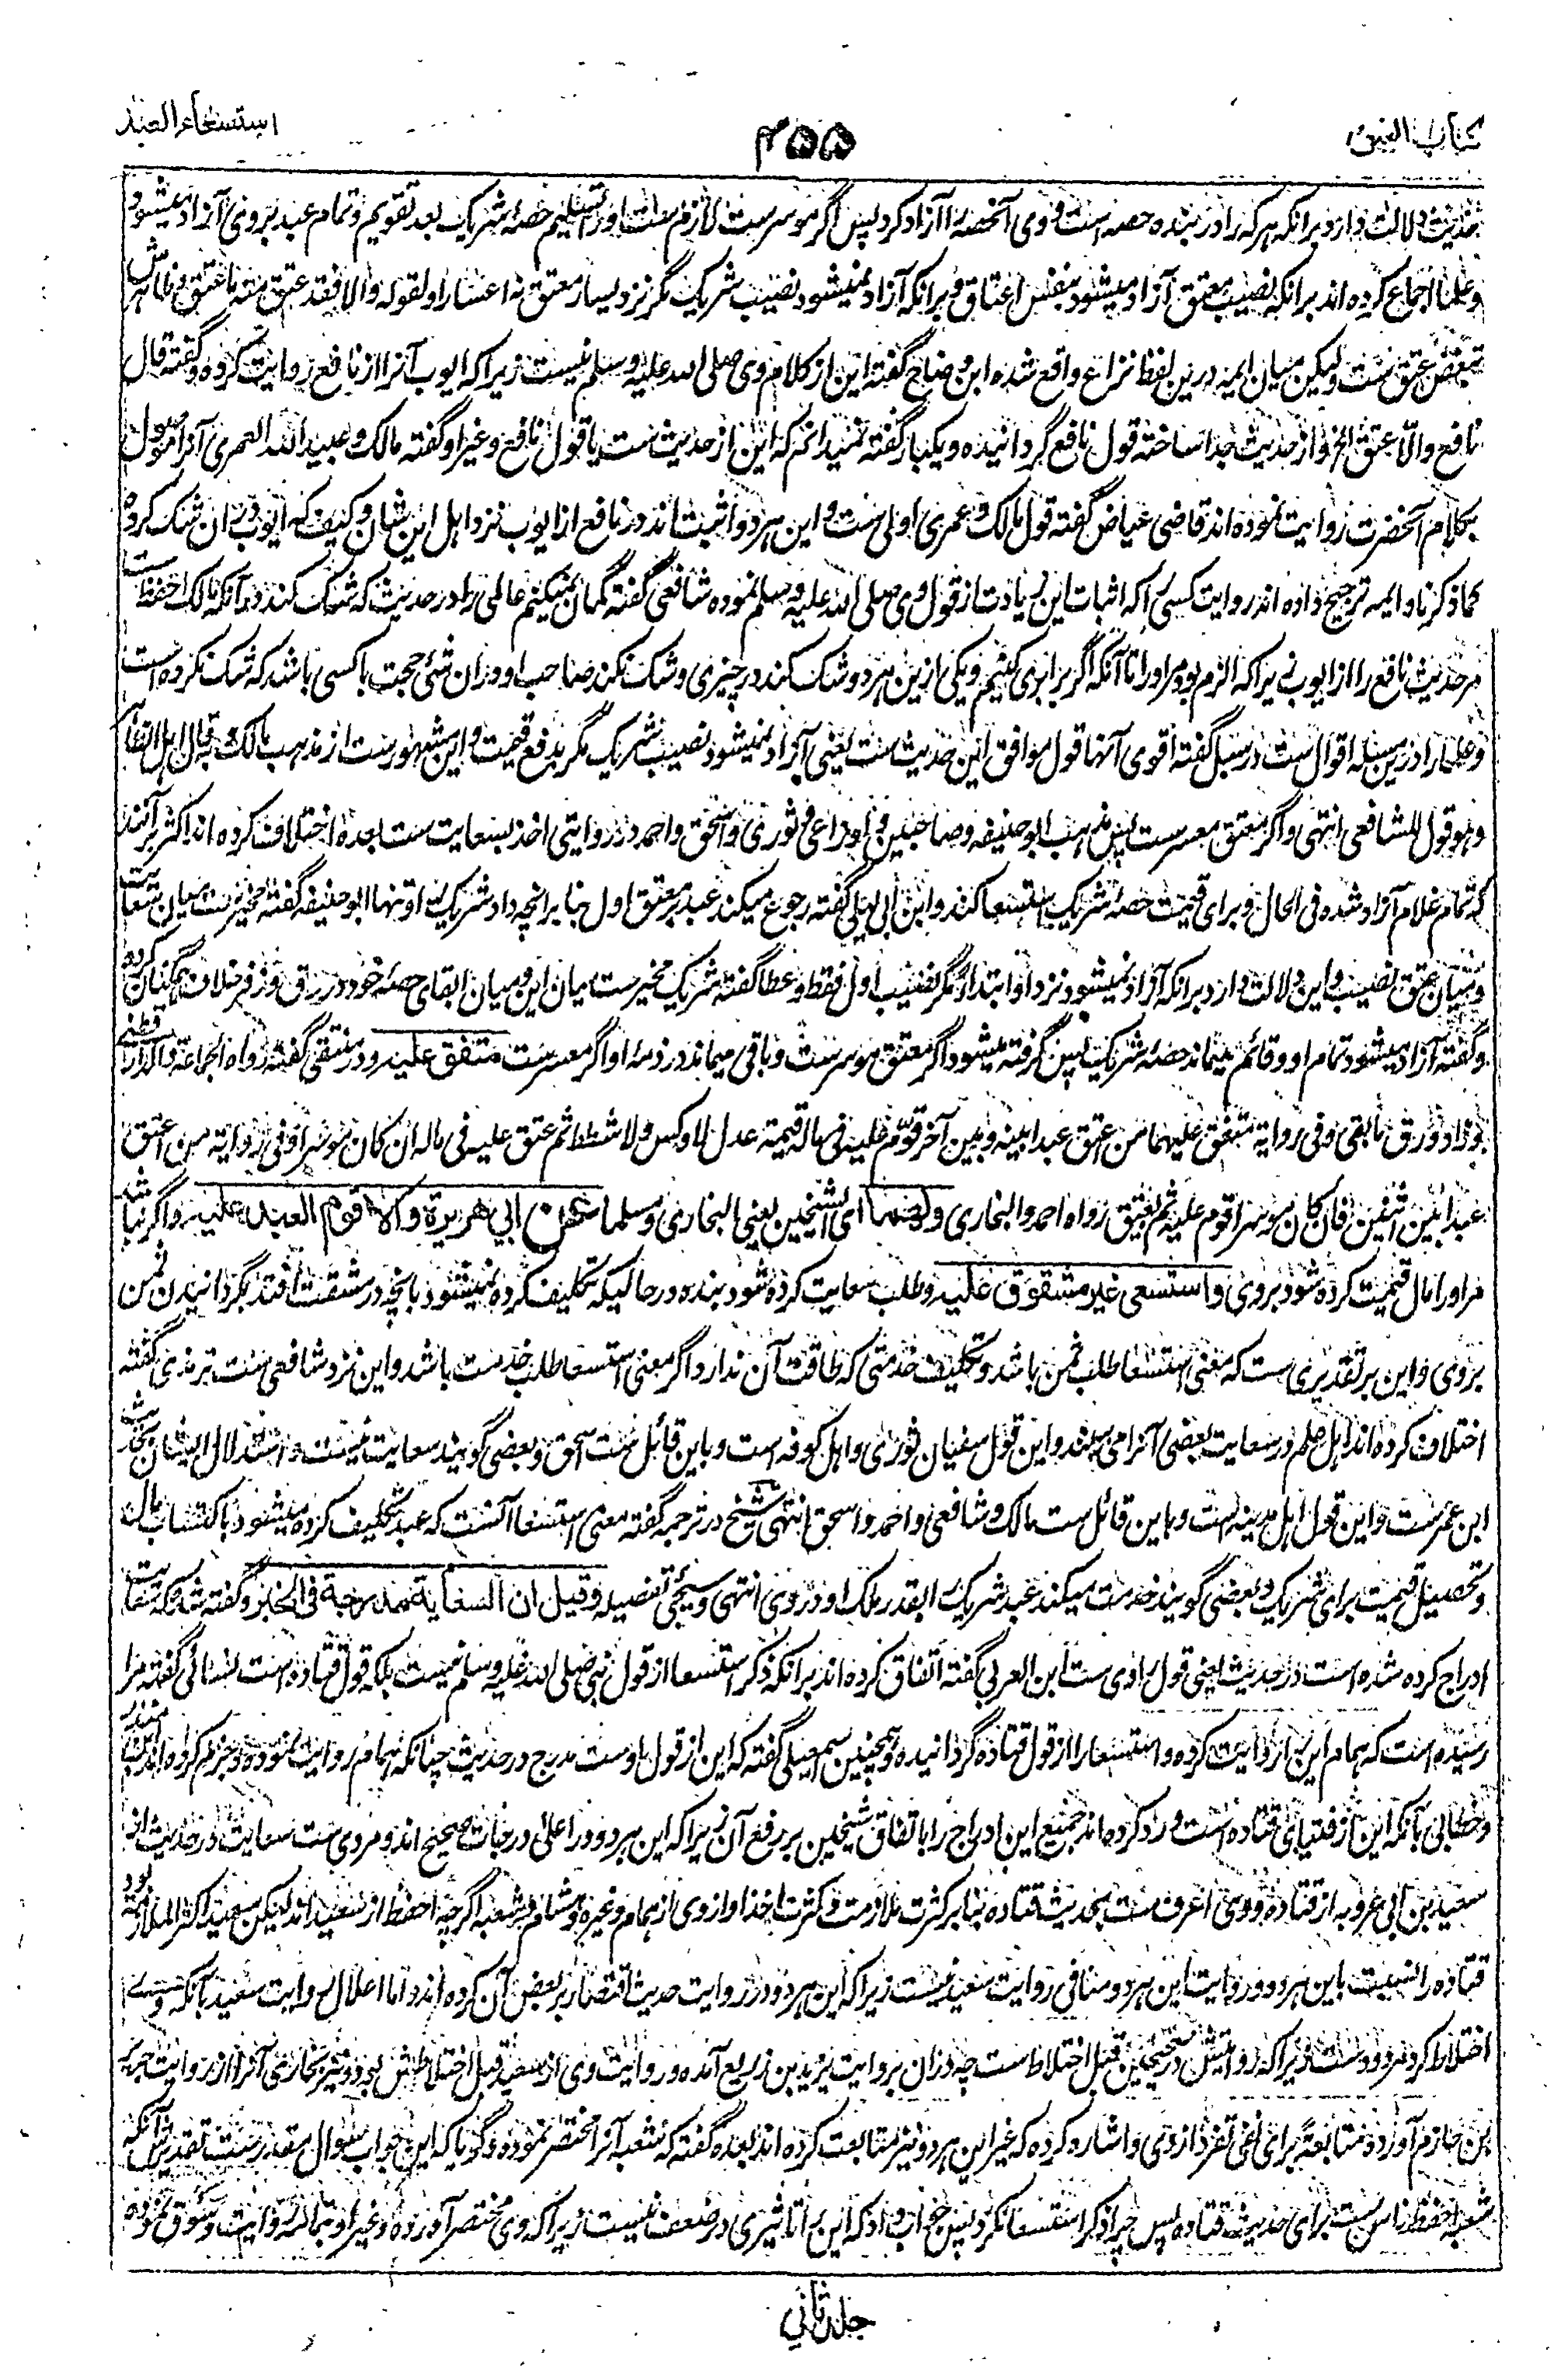 کتاب العتق
۴۵۵
استسعاء العبد
حدیث دلالت دارد برانکه هرکه را در بنده حصه است و وی آنحصه را آزاد کرد پس اگر موسرست لازم ست او را تسلیم حصهٔ شریک بعد تقویم و تمام عبد بروی آزاد میشود
و علما اجماع کرده اند برانکه نصیب معتق آزاد میشود بنفس اعتاق و برانکه آزاد نمیشود نصیب شریک مگر نزد یسار معتق نه اعسار او لقوله والا فقد عتق منه ما عتق و ظاهرش
تبعض عتق ست ولیکن میان ایمه درین لفظ نزاع واقع شده ابن وضاح گفته این از کلام وی صلی الله علیه وسلم نیست زیراکه ایوب آنرا از نافع روایت کرده و گفته قال
نافع والا عتق الخ و از حدیث جدا ساخته قول نافع گردانیده و یکبار گفته نمیدانم که این از حدیث ست یا قول نافع و غیر او گفته مالک و عبید الله العمری آنرا موصول
بکلام آنحضرت روایت نموده اند قاضی عیاض گفته قول مالک و عمری اولی ست و این هر دو اثبت اند در نافع از ایوب نزد اهل این شان و کیف که ایوب دران شک کرده
کما ذکرنا و ایمه ترجیح داده اند روایت کسی را که اثبات این زیادت از قول وی صلی الله علیه وسلم نموده شافعی گفته گمان نمیکنم عالمی را در حدیث که شک کند در آنکه مالک احفظ ست
مر حدیث نافع را از ایوب زیراکه الزم بود مر او را تا آنکه اگر برابری کنیم و یکی ازین هر دو شک کند در چیزی و شک نکند صاحب او دران شئ حجت با کسی باشد که شک نکرده است
و علما را درین مسئله اقوال ست در سبل گفته اقوی آنها قول موافق این حدیث ست یعنی آزاد نمیشود نصیب شریک مگر بدفع قیمت و این مشهورست از مذهب مالک و به قال اهل الظاهر
و هو قول للشافعی انتهی و اگر معتق معسرست پس مذهب ابوحنیفه و صاحبین و اوزاعی و ثوری و اسحق و احمد در روایتی اخذ بسعایت ست بعده اختلاف کرده اند اکثر برآنند
که تمام غلام آزاد شده فی الحال و برای قیمت حصهٔ شریک استسعا کند و ابن ابی لیلی گفته رجوع میکند عبد بر معتق اول بنا بر آنچه داد شریک را و تنها ابوحنیفه گفته مخیرست میان سعایت
و میان عتق نصیب و این دلالت دارد برانکه آزاد نمیشود نزد او ابتداءً مگر نصیب اول فقط و عطا گفته شریک مخیرست میان این و میان ابقای حصهٔ خود در رق و زفر خلاف همگنان کرده
و گفته آزاد میشود تمام او و قائم میماند حصهٔ شریک پس گرفته میشود اگر معتق موسرست و باقی میماند در ذمهٔ او اگر معسرست متفق علیه و در منتقی گفته رواه الجماعة والدارقطنی
و زاد و رق ما بقی و فی روایة متفق علیهما من عتق عبدا بینه و بین آخر قوم علیه فی ماله قیمة عدل لا وکس ولا شطط ثم عتق علیه فی ماله ان کان موسرا و فی روایة من اعتق
عبدا بین اثنین فان کان موسرا قوم علیه ثم یعتق رواه احمد والبخاری ولهما ای الشیخین یعنی البخاری و مسلما عن ابی هریرة والا قوم العبد علیه و اگر نباشد
مر او را مال قیمت کرده شود بروی واستسعی غیر مشقوق علیه و طلب سعایت کرده شود بنده در حالیکه تکلیف کرده نمیشود بآنچه در مشقت افتد بگردانیدن ثمن
بروی و این بر تقدیری ست که معنی استسعا طلب ثمن باشد و تکلیف خدمتی که طاقت آن ندارد اگر معنی استسعا طلب خدمت باشد و این نزد شافعی ست ترمذی گفته
اختلاف کرده اند اهل علم در سعایت بعضی آنرا می بینند و این قول سفیان ثوری و اهل کوفه است و باین قائل ست اسحق و بعضی گویند سعایت نیست و استدلال ایشان بحدیث
ابن عمرست و این قول اهل مدینه است و باین قائل ست مالک و شافعی و احمد و اسحق انتهی شیخ در ترجمه گفته معنی استسعا آنست که عبد تکلیف کرده میشود باکتساب مال
و تحصیل قیمت برای شریک و بعضی گویند خدمت میکند عبد شریک را بقدر ملک او در وی انتهی و سیجئ تفصیله وقیل ان السعایة مدرجة فی الخبر و گفته شد که سعایت
ادراج کرده شده است در حدیث یعنی قول راوی ست ابن العربی گفته اتفاق کرده اند برانکه ذکر استسعا از قول نبی صلی الله علیه وسلم نیست بلکه قول قتاده است نسائی گفته مرا
رسیده است که همام این را روایت کرده و استسعا را از قول قتاده گردانیده و همچنین اسمعیلی گفته که این از قول اوست مدرج در حدیث چنانکه همام روایت نموده و جزم کرده اند ابن منذر
و خطابی بآنکه این از فتیای قتاده است و رد کرده اند جمیع این ادراج را باتفاق شیخین بر رفع آن زیراکه این هر دو در اعلی درجات صحیح اند و مروی ست سعایت در حدیث از
سعید بن ابی عروبه از قتاده و وی اعرف ست بحدیث قتاده بنا بر کثرت ملازمت و کثرت اخذ او از وی از همام و غیره و هشام و شعبه اگرچه احفظ از سعید اند لیکن سعید اکثر الملازمة بود
قتاده را نسبت باین هر دو و روایت این هر دو منافی روایت سعید نیست زیراکه این هر دو در روایت حدیث اقتصار بر بعض آن کرده اند و اما اعلال روایت سعید بآنکه وی
اختلاط کرد مردودست زیراکه روایتش در صحیحین قبل اختلاط ست چه دران بروایت یزید بن زریع آمده و روایت وی از سعید قبل اختلاطش بود و نیز بخاری آنرا از روایت جریر
بن حازم آورده متابعةً برای نفی تفرد از وی و اشاره کرده که غیر این هر دو نیز متابعت کرده اند بعده گفته که شعبه آنرا مختصر نموده و گویا که این جواب سوال مقدرست تقدیرش آنکه
شعبه احفظ ناس ست برای حدیث قتاده پس چرا ذکر استسعا نکرد پس جواب داد که این را تاثیری در ضعف نیست زیراکه وی مختصر آورده و غیر او بتمامه روایت و سوق نموده
جلد ثانی